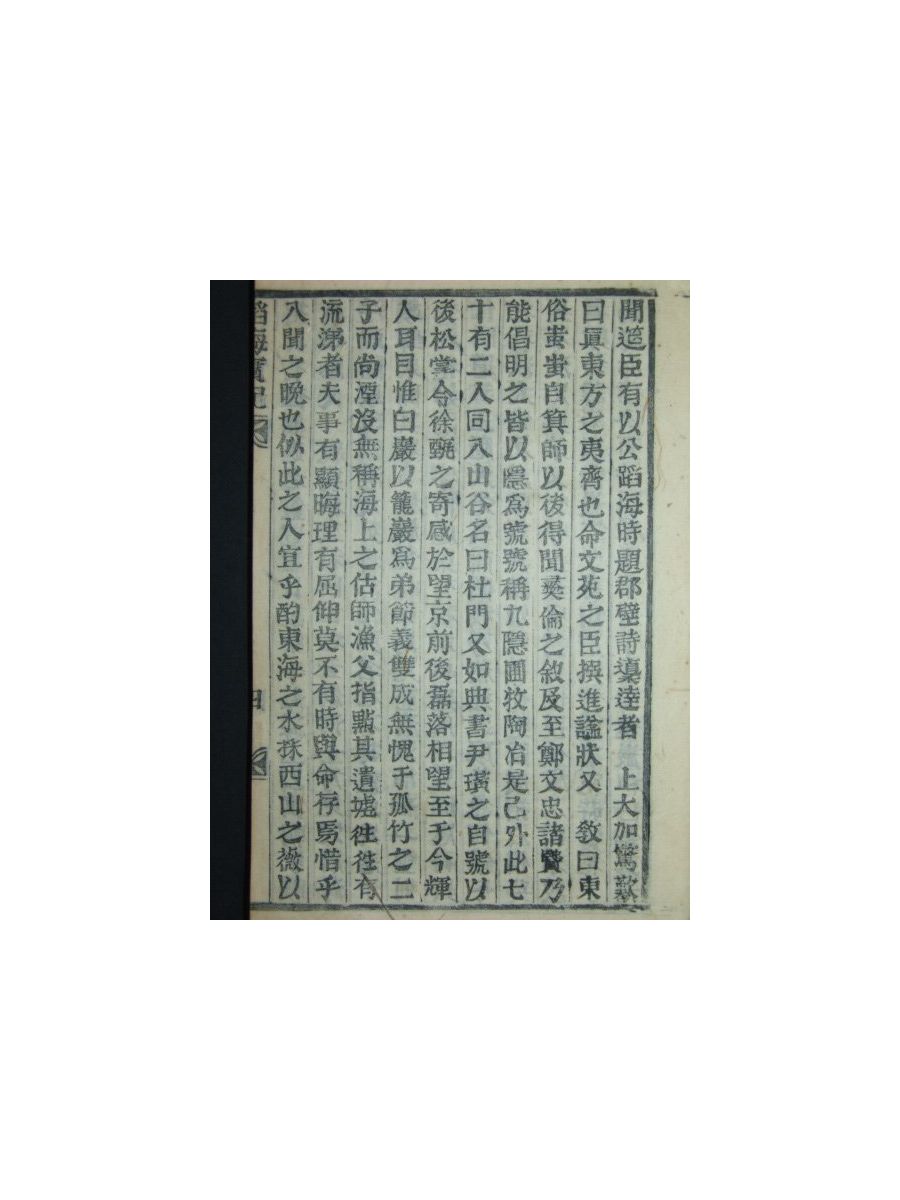 聞筵臣有以公蹈海時題郡壁詩導達者 上大加驚歎
曰眞東方之夷齊也命文苑之臣撰進諡狀又 敎曰東
俗蚩蚩自箕師以後得聞彝倫之敘及至鄭文忠諸賢乃
能倡明之皆以隱爲號號稱九隱圃牧陶冶是己外此七
十有二人同入山谷名曰杜門又如典書尹璜之自號以
後松掌令徐甄之寄感於望京前後磊落相望至于今輝
人耳目惟白巖以籠巖爲弟節義雙成無愧于孤竹之二
子而尚湮沒無稱海上之估師漁父指點其遺墟徃徃有
流涕者夫事有顯晦理有屈伸莫不有時與命存焉惜乎
入聞之晩也似此之人宜乎酌東海之水採西山之薇以
蹈海實記 四